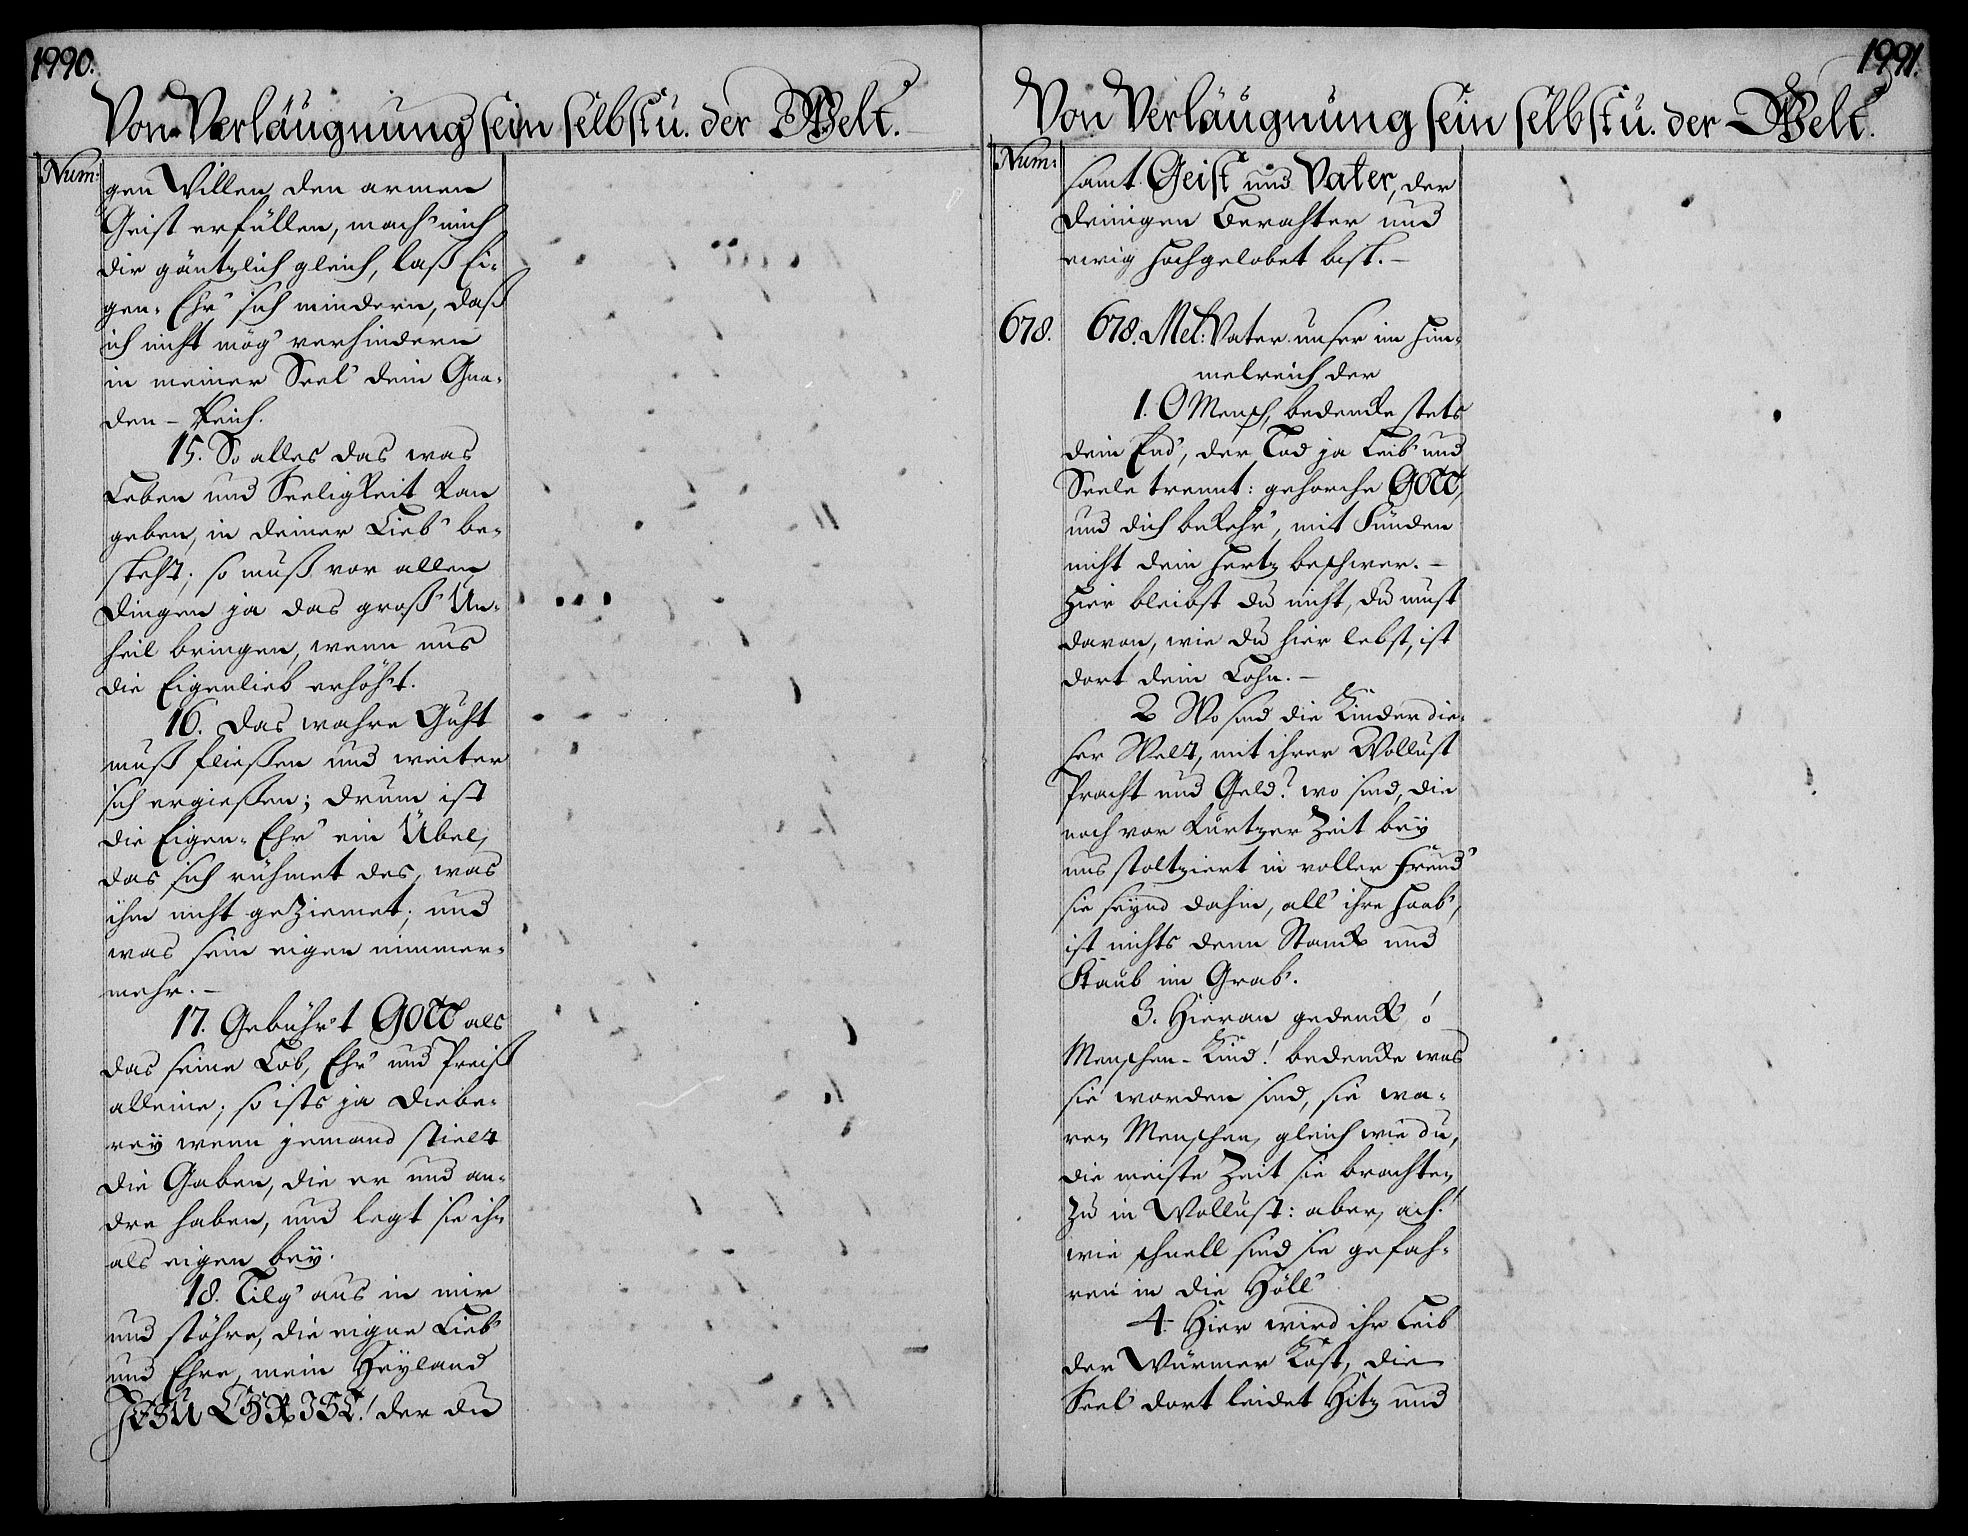 1990.
Von Verläugnung sein selbst u. der Welt.
Num:
gen Willen den armen
Geist erfüllen, mach' mich
dir gäntzlich gleich, laß Ei-
gen-Ehr' sich mindern, daß
ich nicht mög' verhindern
in meiner Seel' dein Gna-
den-Reich.
15. So alles das was
Leben und Seeligkeit kan
geben, in deiner Lieb' be-
steht; so muß vor allen
Dingen ja das groß' Un-
heil bringen, wenn uns
die Eigenlieb erhöht.
16. Das wahre Guht
muß fließen und weiter
sich ergießen; drum ist
die Eigen-Ehr' ein Übel,
das sich rühmet des, was
ihm nicht geziemet; und
was sein eigen nimmer-
mehr.
17. Gebühr't GOTT als
das seine Lob, Ehr' und Preiß
alleine; so ists ja Diebe-
rey wenn jemand stielt
die Gaben, die er und an-
dre haben, und legt sie ihm
als eigen bey.
18. Tilg' aus in mir
und stöhre, die eigne Lieb'
und Ehre, mein Heyland
JESU CHRIST! der du
1991.
Von Verläugnung sein selbst u. der Welt.
Num:
samt Geist und Vater, der
deinigen Berahter und
ewig hochgelobet bist.
678. 678. Mel: Vater unser im Him-
melreich der
1. O Mensch, bedencke stets
dein End', der Tod ja Leib' und
Seele trennt: gehorche GOTT,
und dich bekehr', mit Sünden
nicht dein Hertz beschwer.
Hier bleibst du nicht, du must
davon, wie du hier lebst, ist
dort dein Lohn.
2 Wo sind die Kinder die-
ser Welt, mit ihrer Wollust
Pracht und Geld? wo sind, die
noch vor kurtzer Zeit bey
uns stoltziert in voller Freud'
sie seynd dahin, all' ihre Haab',
ist nichts denn Stanck und
Staub im Grab'.
3. Hieran gedenck', o!
Menschen-Kind! bedencke was
sie worden sind, sie wa-
ren Menschen, gleich wie du,
die meiste Zeit sie brachten
zu in Wollust: aber, ach!
wie schnell sind sie gefah-
ren in die Höll'
4. Hier wird ihr Leib
der Würmer Kost, die
Seel' dort leidet Hitz und